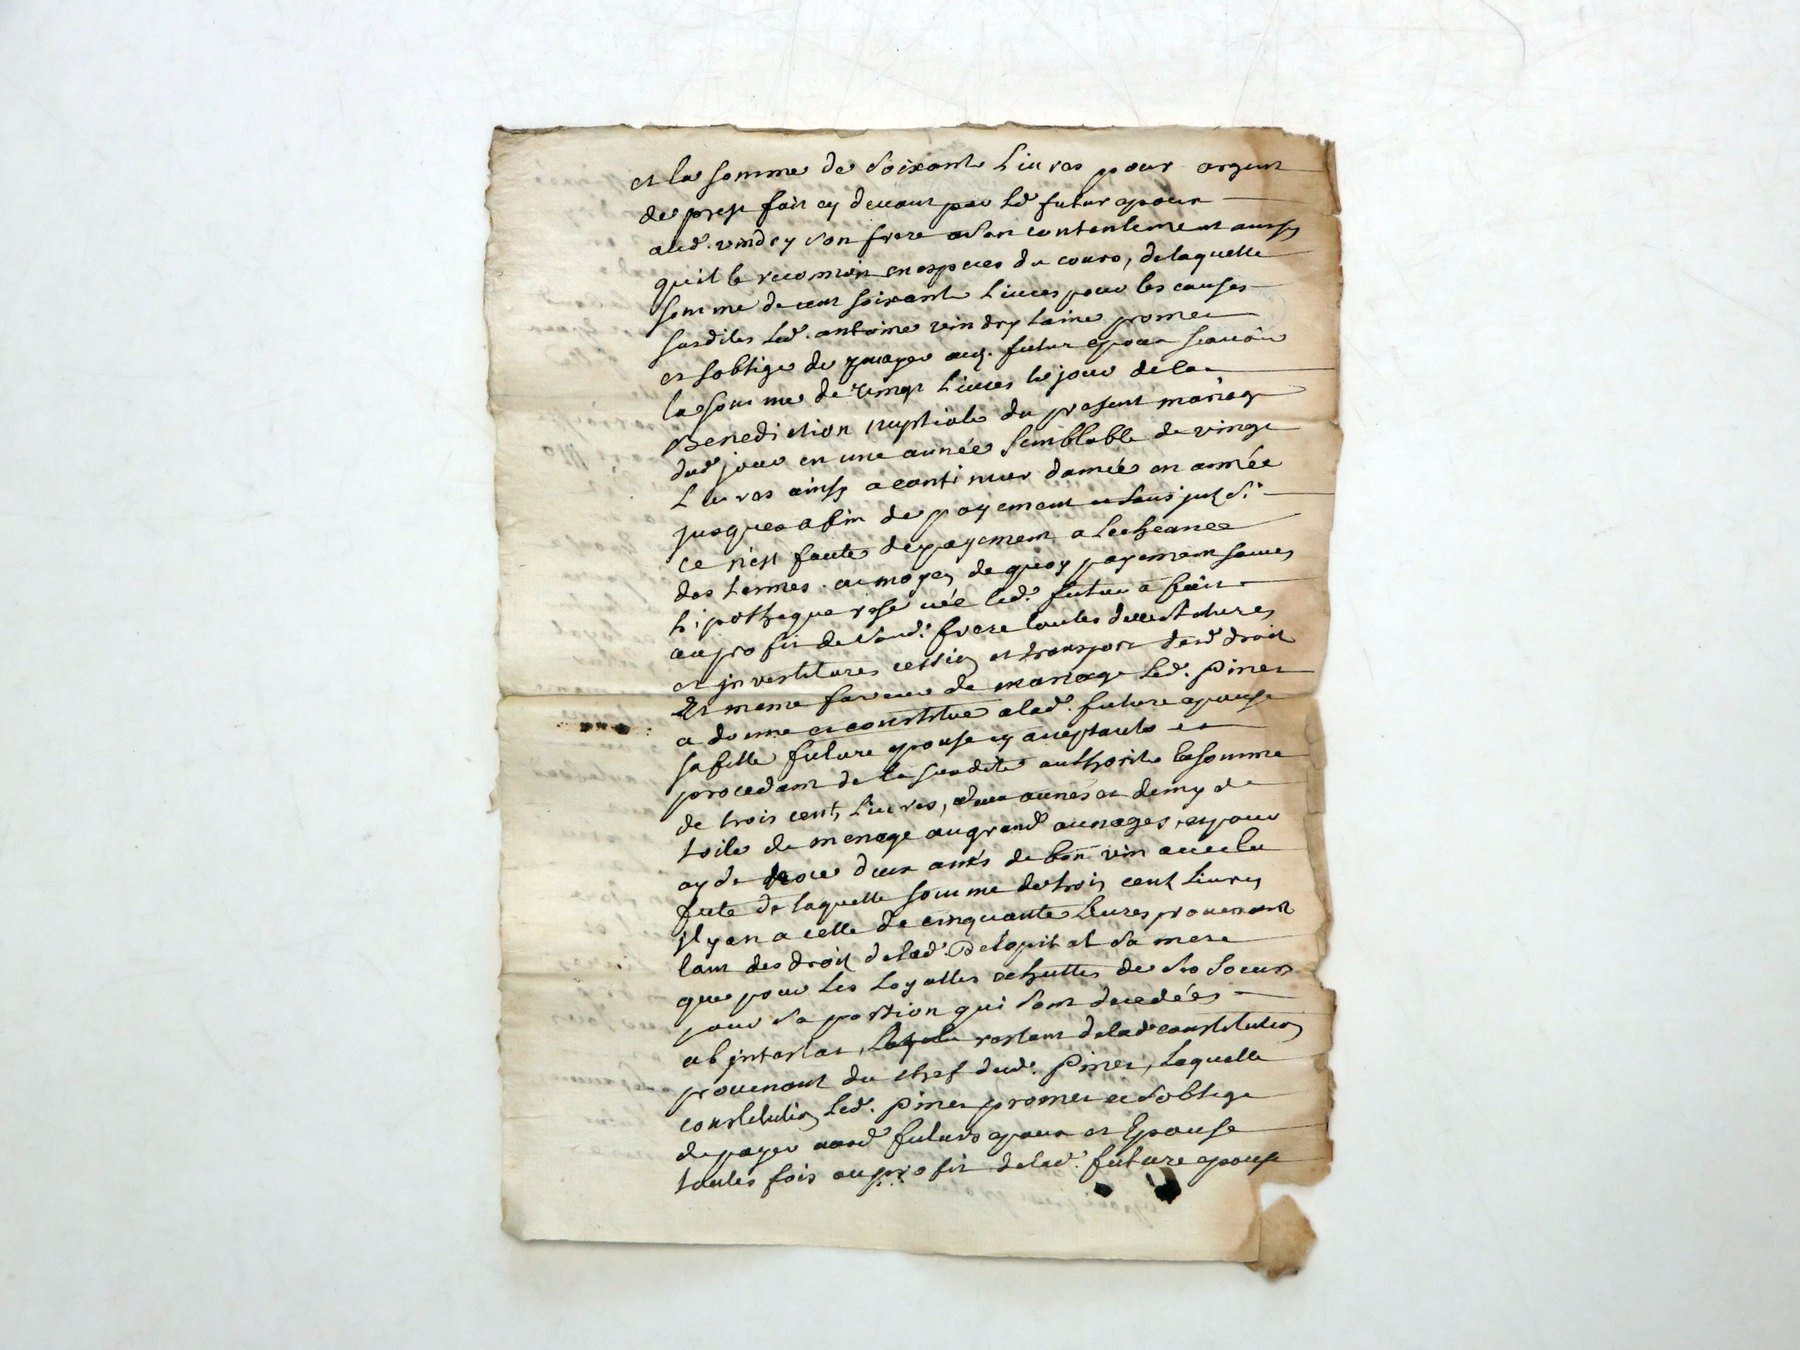 et la somme de soixante Livres pour argent
de prest fait cy devant par led. futur epoux
aud. vindry son frere a son contentement ainsy
qu'il le reconnoit en especes du cours, de laquelle
somme de cent soixante Livres pour les causes
susdites led. antoine vindry laine promet
et soblige de payer aud. futur epoux scavoir
la somme de vingt Livres le jour de la
Benediction nuptiale du present mariage
dud. jour en une année semblable de vingt
Livres ainsy a continuer dannée en année
jusques a fin de payement
ce n'est faute de payement a Lecheance
des termes. au moyen de quoy payement sauve
hipotheque reservée led. futur a fait
au profit de sond. frere toutes devestitures
et jnvestitures cession et transport desd. droit
Et meme faveur de mariage led. Pinet
a donné et constitué a lad. future epouse
sa fille future epouse cy acceptante et
procedant de la susdite authorité la somme
de trois cent Livres, deux aunes et demy de
toile de menage au grand aunages, et pour
ayde de deux anés de bon vin avec la
fute de laquelle somme de trois cent Livres
jl y en a celle de cinquante Livres provenant
tant des droit de lad. Delopital sa mere
que pour les Loyalles echuttes de ses soeurs
pour sa portion qui sont decedées
ab jntestat, restant de lad. constitution
provenant du chef dud. Pinet, Laquelle
constitution led. Pinet promet et soblige
de payer ausd. futurs epoux et Epouse
toutes fois au profit de lad. future epouse